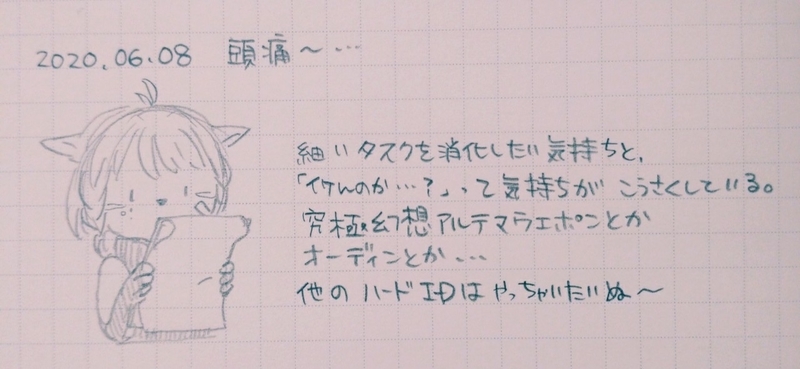 2020.06.08 頭痛〜…
細いタスクを消化したい気持ちと、
「イケんのか…?」って気持ちがこうさくしている。
究極幻想アルテマウェポンとか
オーディンとか…
他のハードIDはやっちゃいたいぬ〜